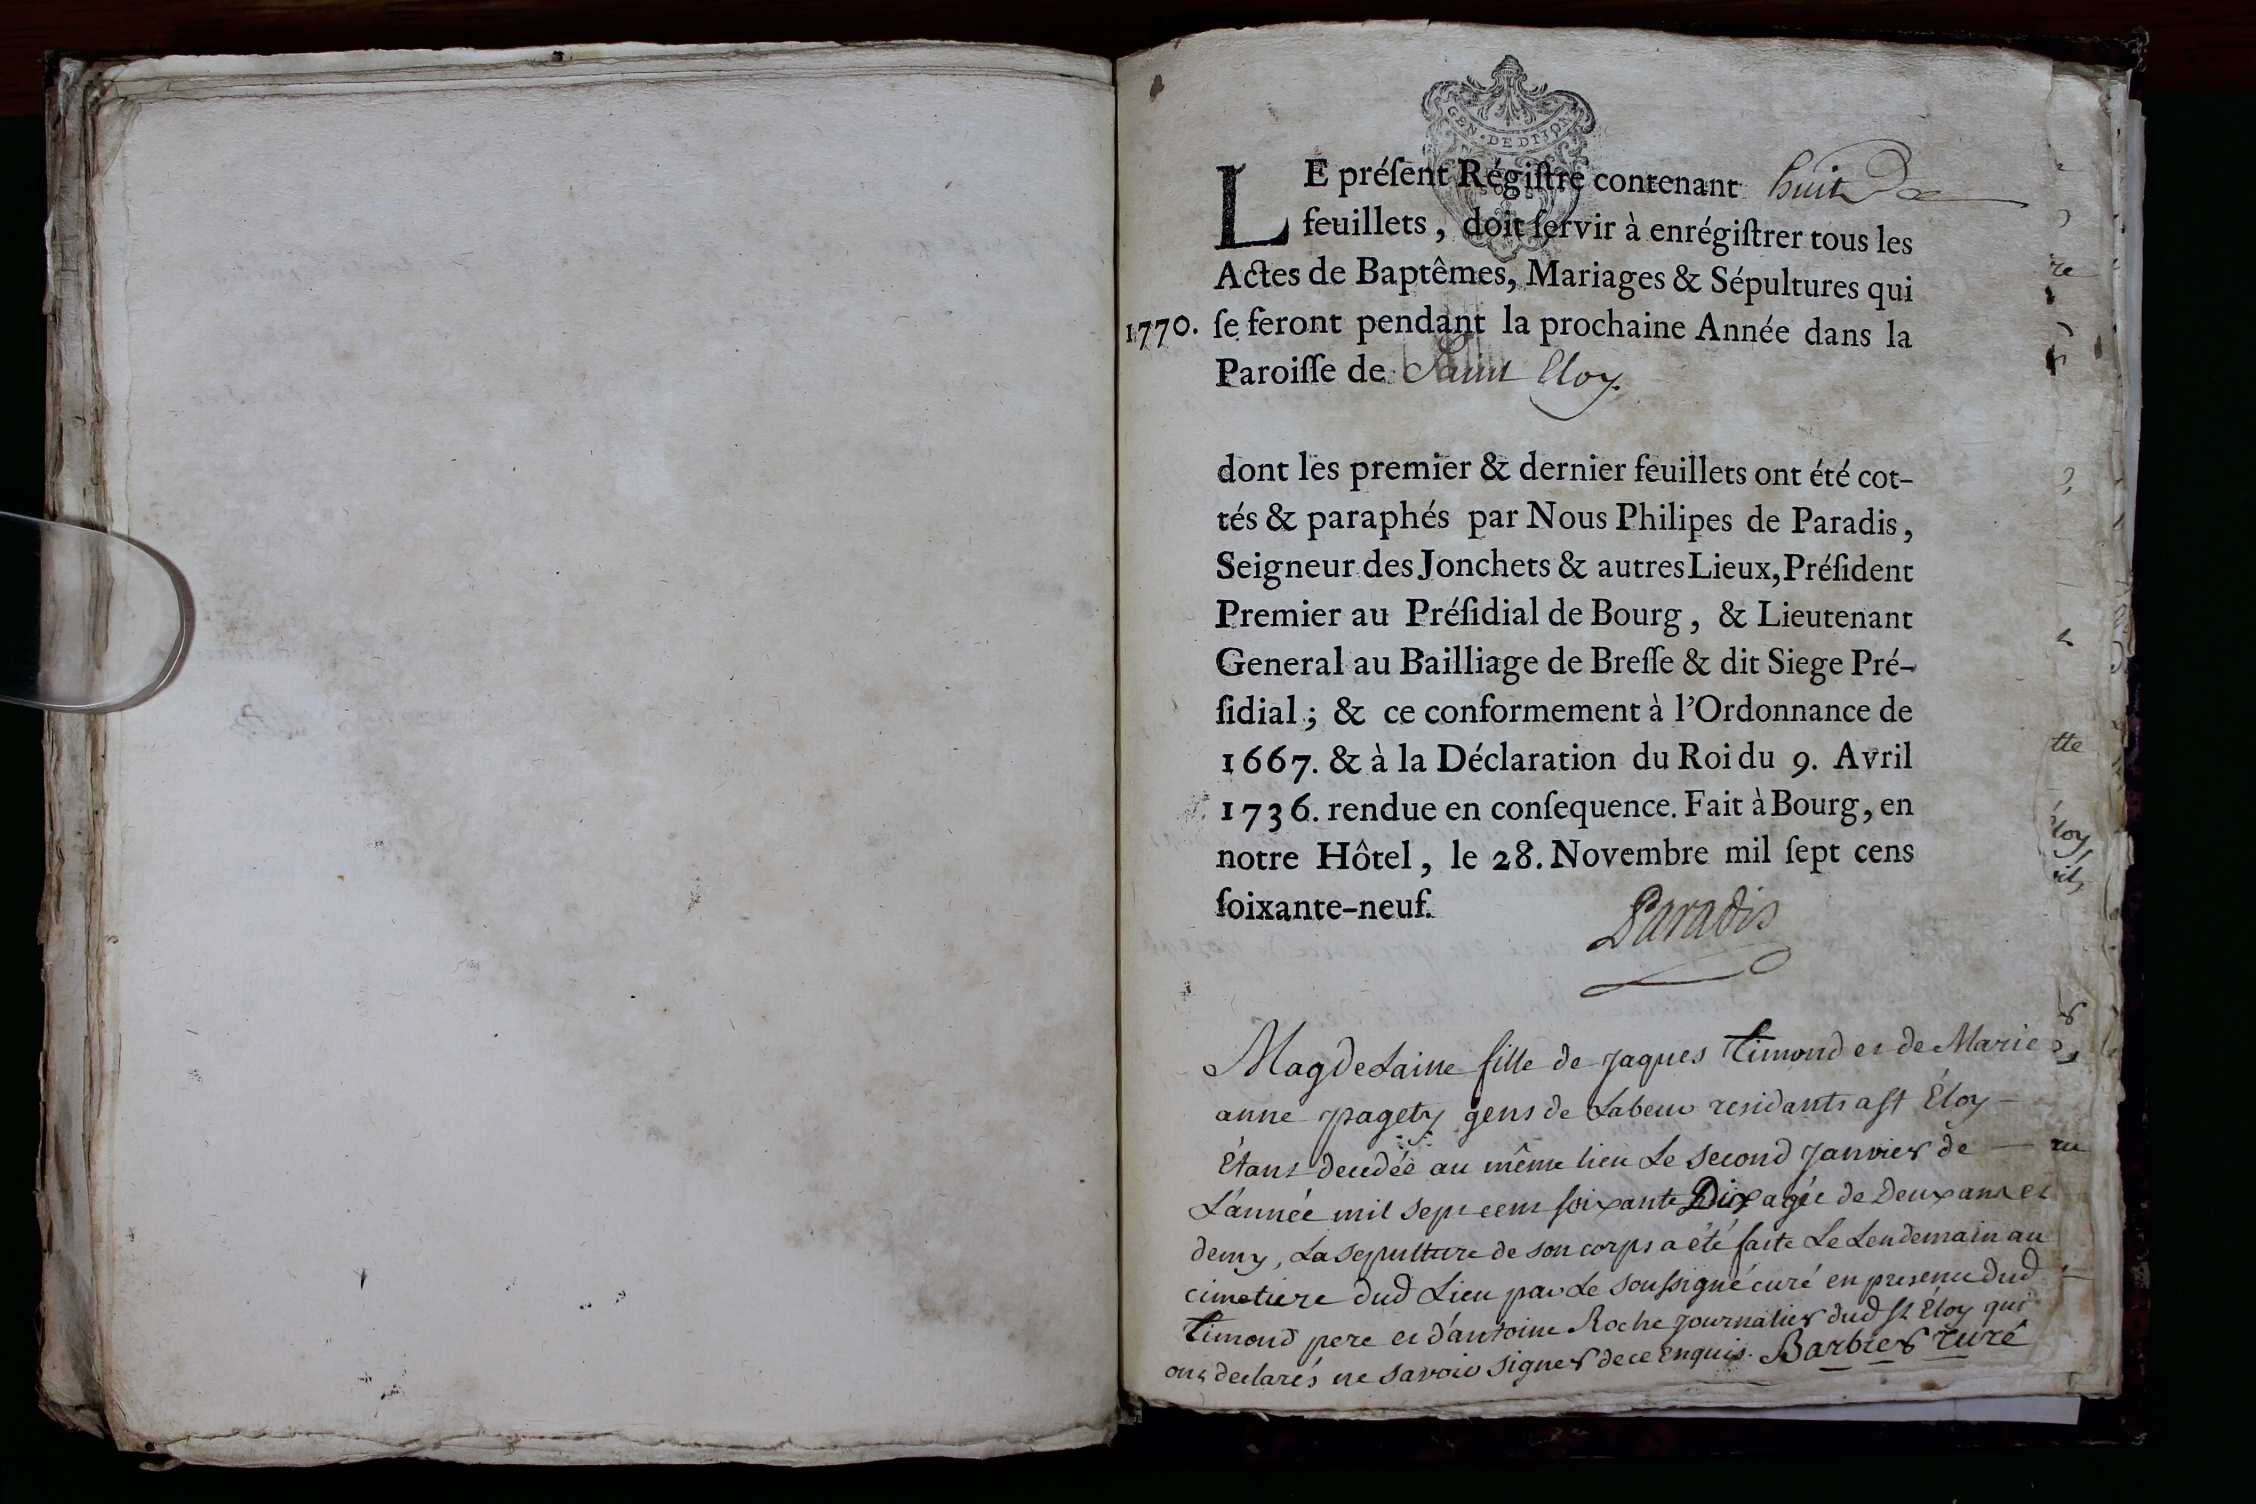 GEN · DE DIJON
LE préſent Régiſtre contenant huit
feuillets, doit ſervir à enrégiſtrer tous les
Actes de Baptêmes, Mariages & Sépultures qui
1770. ſe feront pendant la prochaine Année dans la
Paroiſſe de Saint Eloy.
dont les premier & dernier feuillets ont été cot-
tés & paraphés par Nous Philipes de Paradis,
Seigneur des Jonchets & autres Lieux, Préſident
Premier au Préſidial de Bourg, & Lieutenant
General au Bailliage de Breſſe & dit Siege Pré-
ſidial; & ce conformement à l'Ordonnance de
1667. & à la Déclaration du Roi du 9. Avril
1736. rendue en conſequence. Fait à Bourg, en
notre Hôtel, le 28. Novembre mil ſept cens
ſoixante-neuf.
Paradis
Magdelaine fille de Jaques Timond et de Marie
anne pagety gens de Labeur residants a st Éloy
Étant decedée au même lieu Le second Janvier de
L'année mil sept cent soixante Dix agée de Deux ans et
demy, La sepulture de son corps a été faite Le Lendemain au
cimetiere dud Lieu par Le soussigné curé en presence dud
Timond pere et d'antoine Roche journalier dud st Éloy qui
ont declarés ne savoir signer de ce enquis. Barbier curé